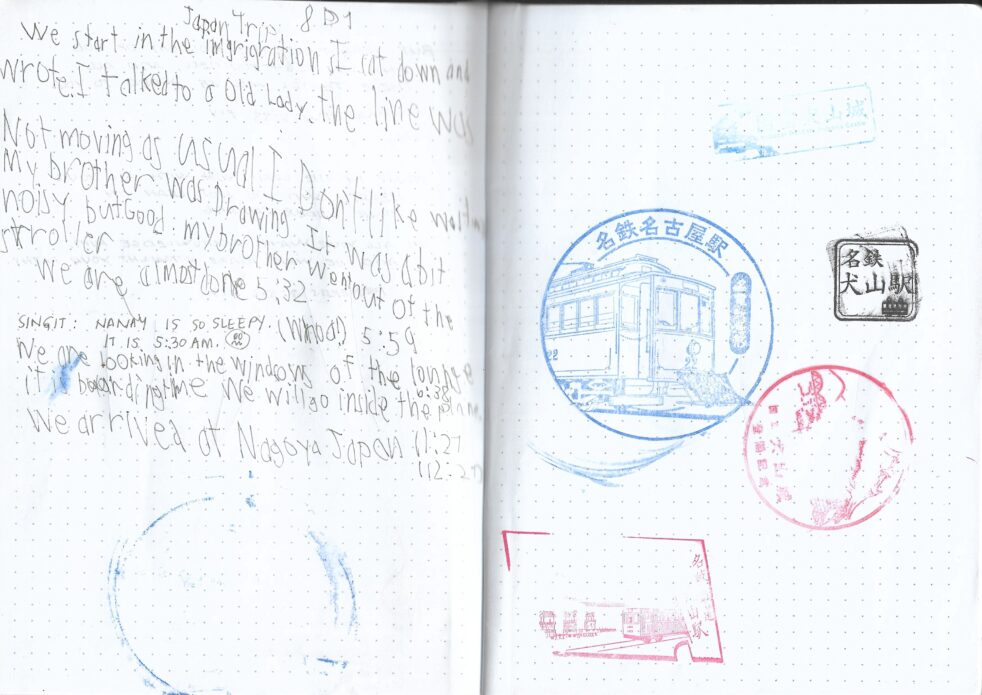 Japan Trip 8 D1
We start in the imgrigration I sat down and
wrote. I talked to a Old Lady. the line was
Not moving as usual I Don't like
My brother was Drawing. It was a bit
noisy but Good. my brother went out of the
stroller
We are almost done 5:32
SINGIT: NANAY IS SO SLEEPY.
IT IS 5:30 AM.
5:59
We are looking in the windows of the lounge
it is boarding time 6:38 We will go inside the
We arrived at Nagoya Japan 11:27
(12:27)
山城
名鉄名古屋駅
22
名鉄
犬山駅
犬山城
名鉄
山駅